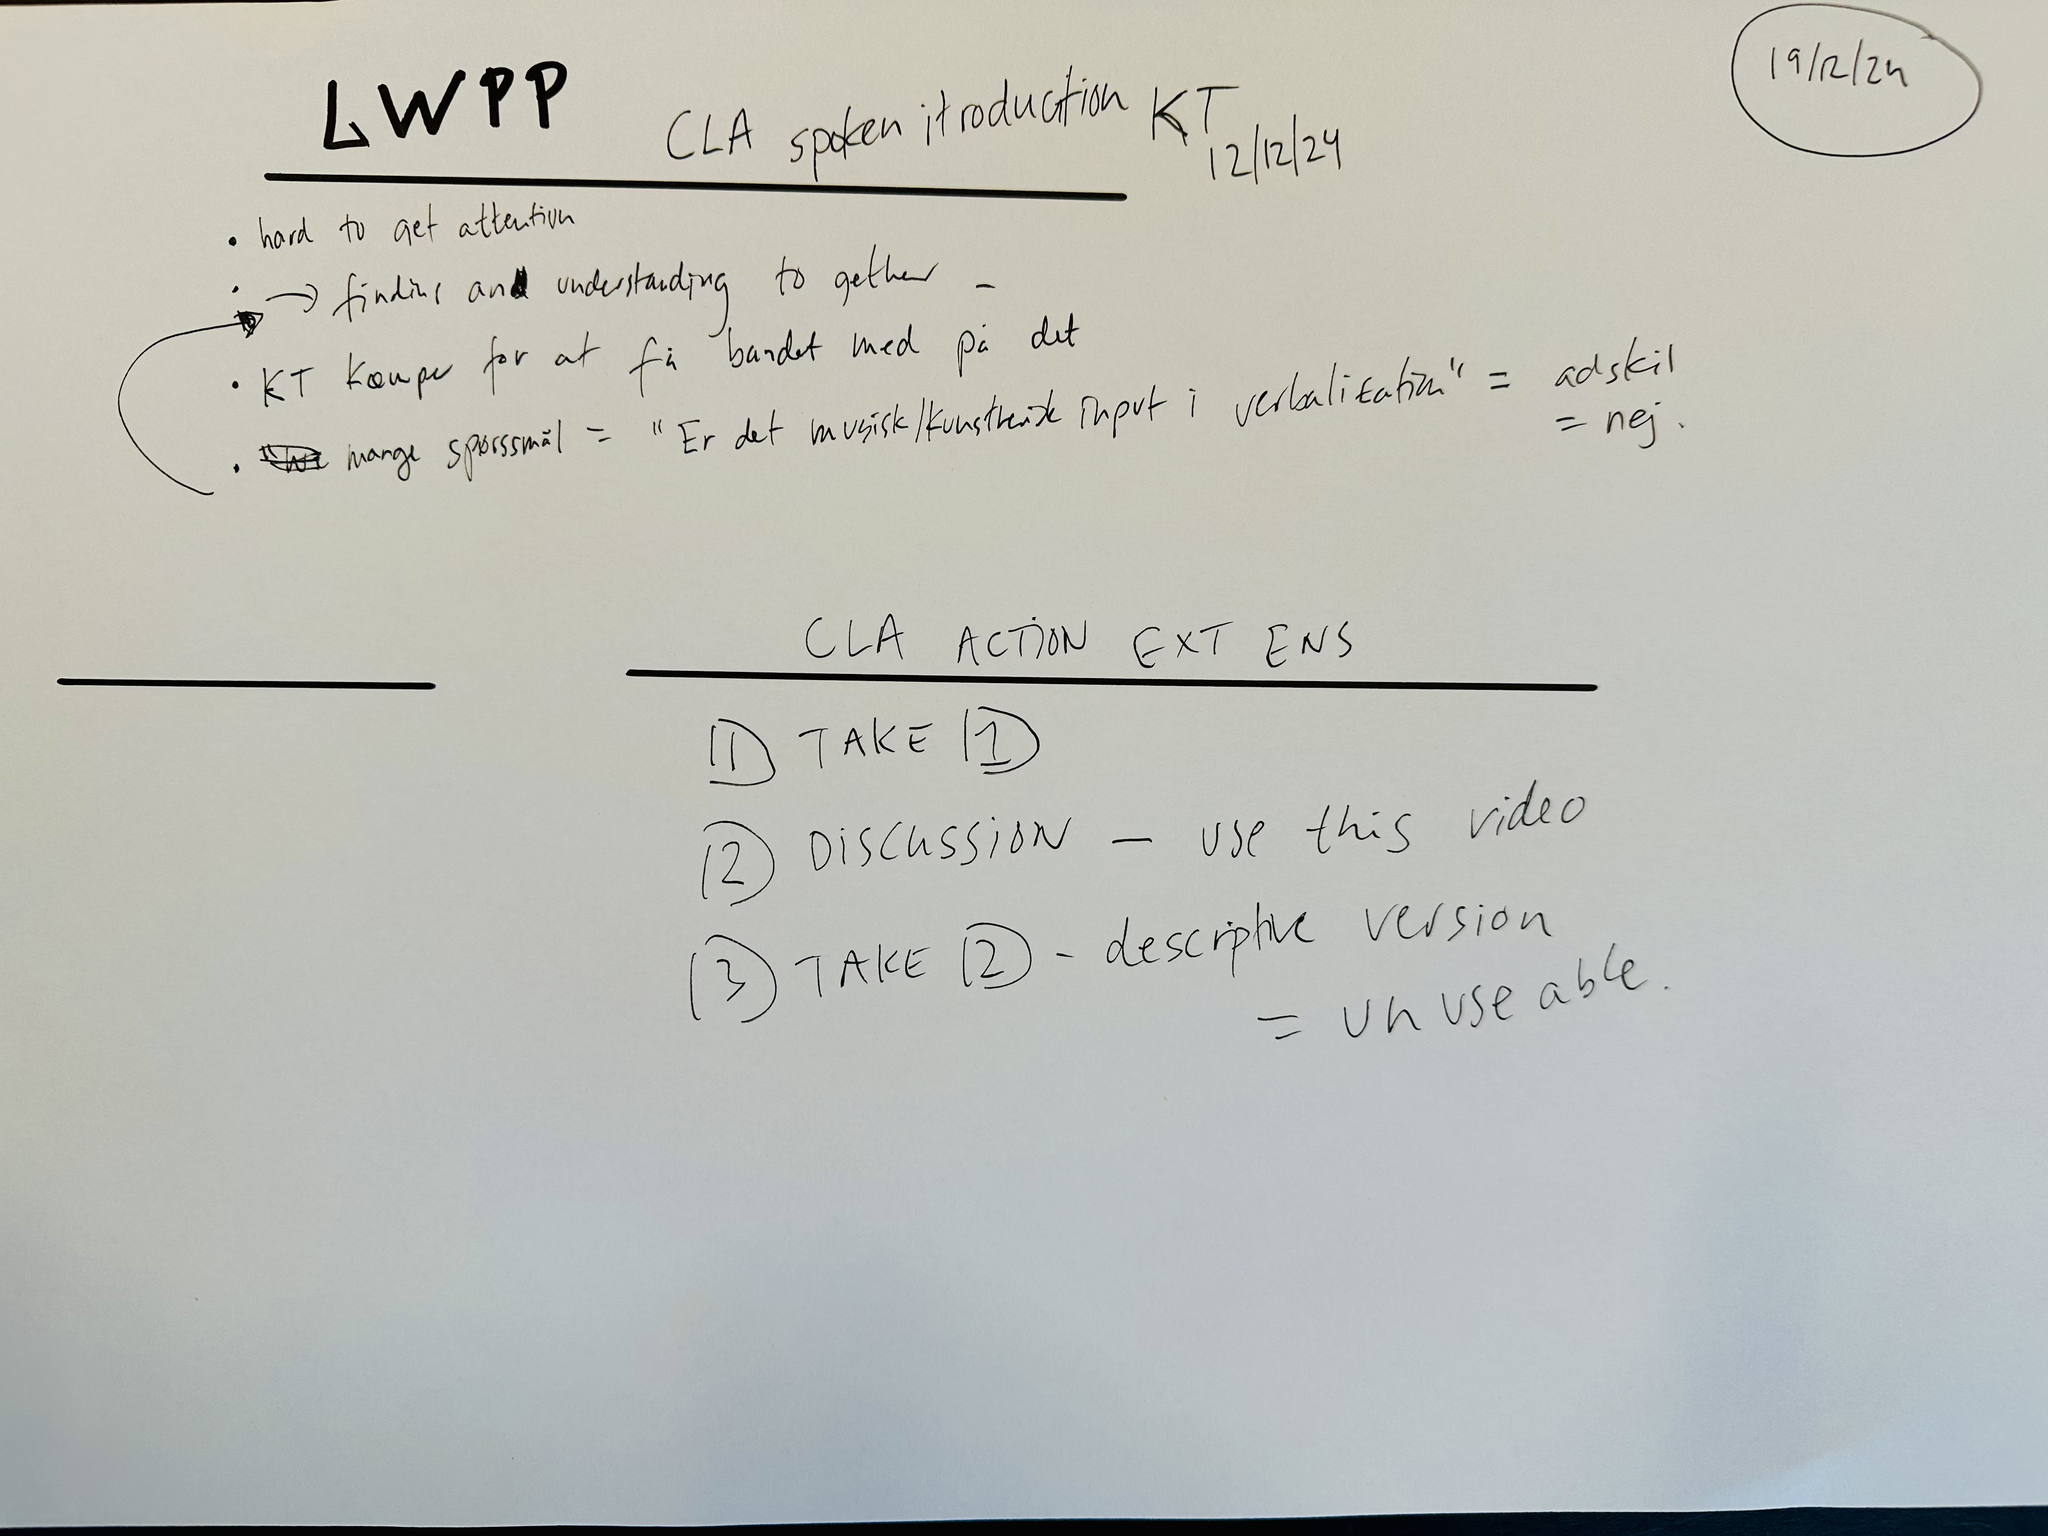 19/12/24
LWPP CLA spoken itroduction KT
12/12/24
• hard to get attention
• → finding and understanding to gether -
• KT kæmper for at få bandet med på det
• mange spørssmål = "Er det musisk/kunstnerisk input i verbalization" = adskil
= nej.
CLA ACTION EXTENS
1) TAKE 1)
2) DISCUSSION - use this video
3) TAKE 2) - descriptive version
= unuseable.